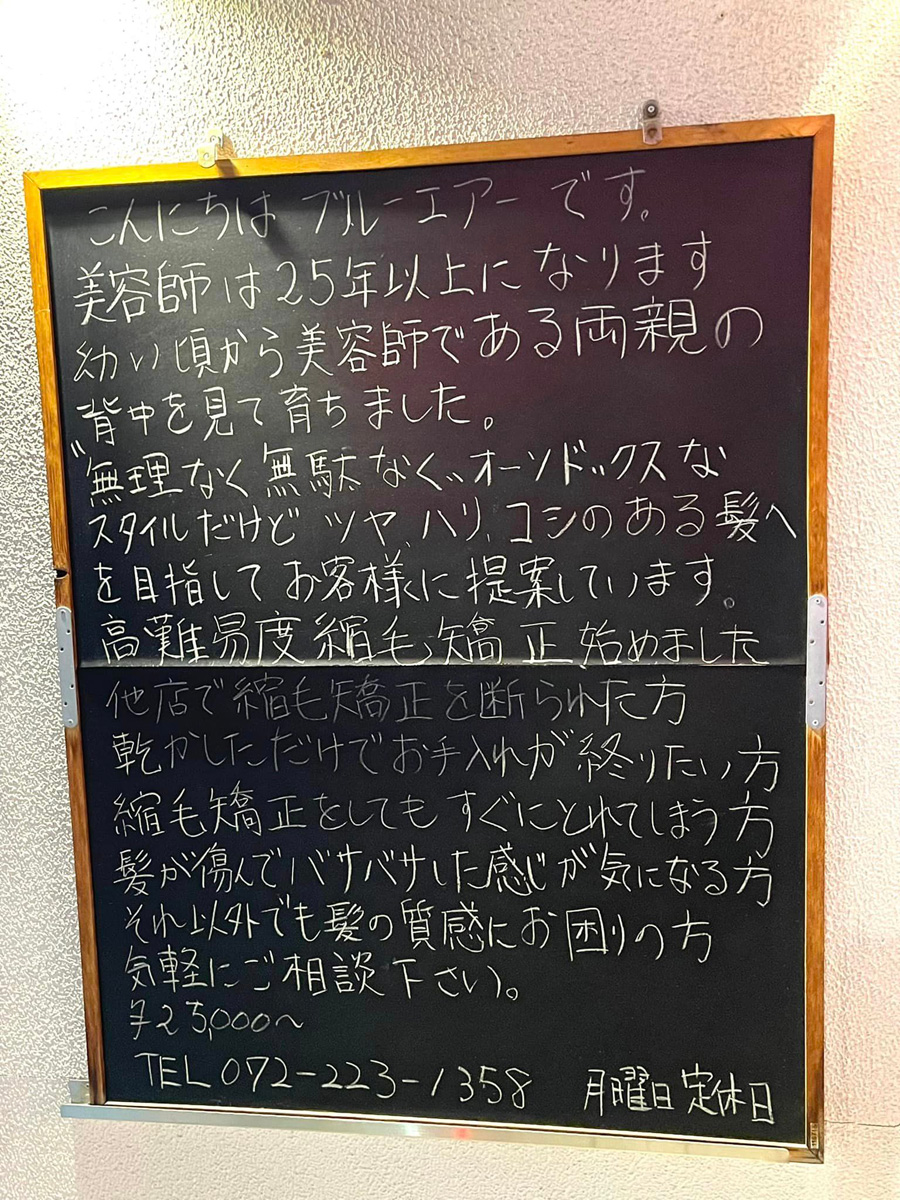 こんにちは ブルーエアー です。
美容師は25年以上になります
幼い頃から美容師である両親の
背中を見て育ちました。
〝無理なく無駄なく〟オーソドックスな
スタイルだけど ツヤ、ハリ、コシのある髪へ
を目指してお客様に提案しています。
高難易度縮毛矯正始めました
他店で縮毛矯正を断られた方
乾かしただけでお手入れが終りたい方
縮毛矯正をしてもすぐにとれてしまう方
髪が傷んでバサバサした感じが気になる方
それ以外でも髪の質感にお困りの方
気軽にご相談下さい。
¥25,000〜
TEL 072-223-1358 月曜日定休日